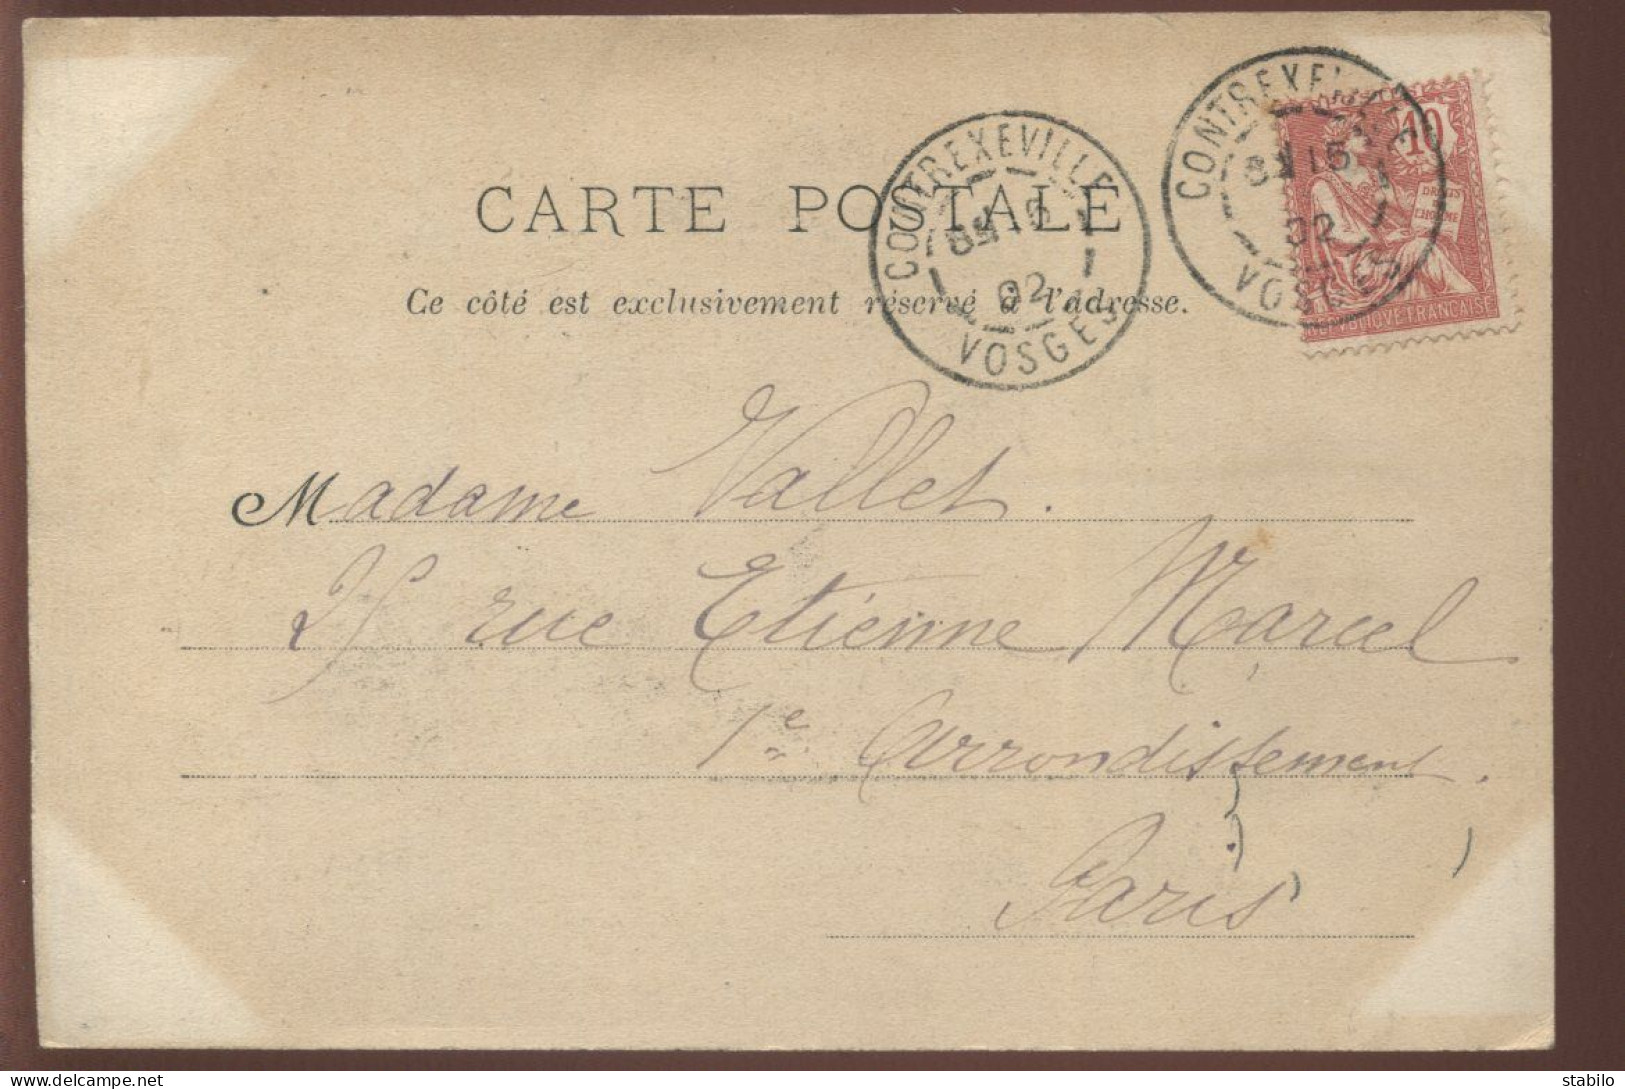 CARTE POSTALE
Ce côté est exclusivement réservé à l'adresse.
CONTREXEVILLE
02
VOSGES
CONTREXEVILLE
15
02
VOSGES
10
DROITS
DE
L'HOMME
REPUBLIQUE FRANCAISE
Madame Vallet.
25 rue Etienne Marcel
1e Arrondissement.
Paris
delcampe.net
stabilo